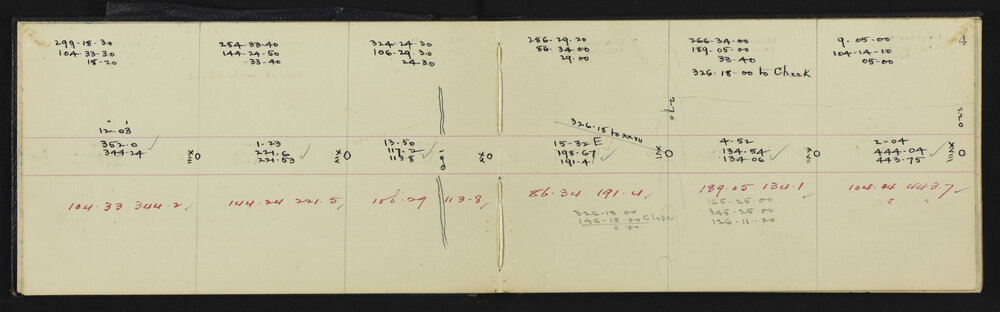 4
299-18-30
104-33-30
18-20
12-03
352.0
344.24
XIII
104.33 344.2
254-33-40
144-24-50
33-40
1-23
221.6
221.53
XIV
144.24 221.5
324-24-30
106-29-30
24-30
13-50
117.2
113.8
9
XV
106.29 113.8
286-29-20
86-34-00
29-00
326.18 to XXVII
15-32 E
198.67
191.41
XVI
86.34 191.4
326-18-00
146-18-00 Check
0 00
266-34-00
189-05-00
33-40
326-18-00 to Check
270
4-52
134.54
134.06
XVII
189.05 134.1
165-25-00
345-25-00
126-11-20
9-05-00
104-14-10
05-00
220
2-04
444.04
443.75
XVIII
443.7